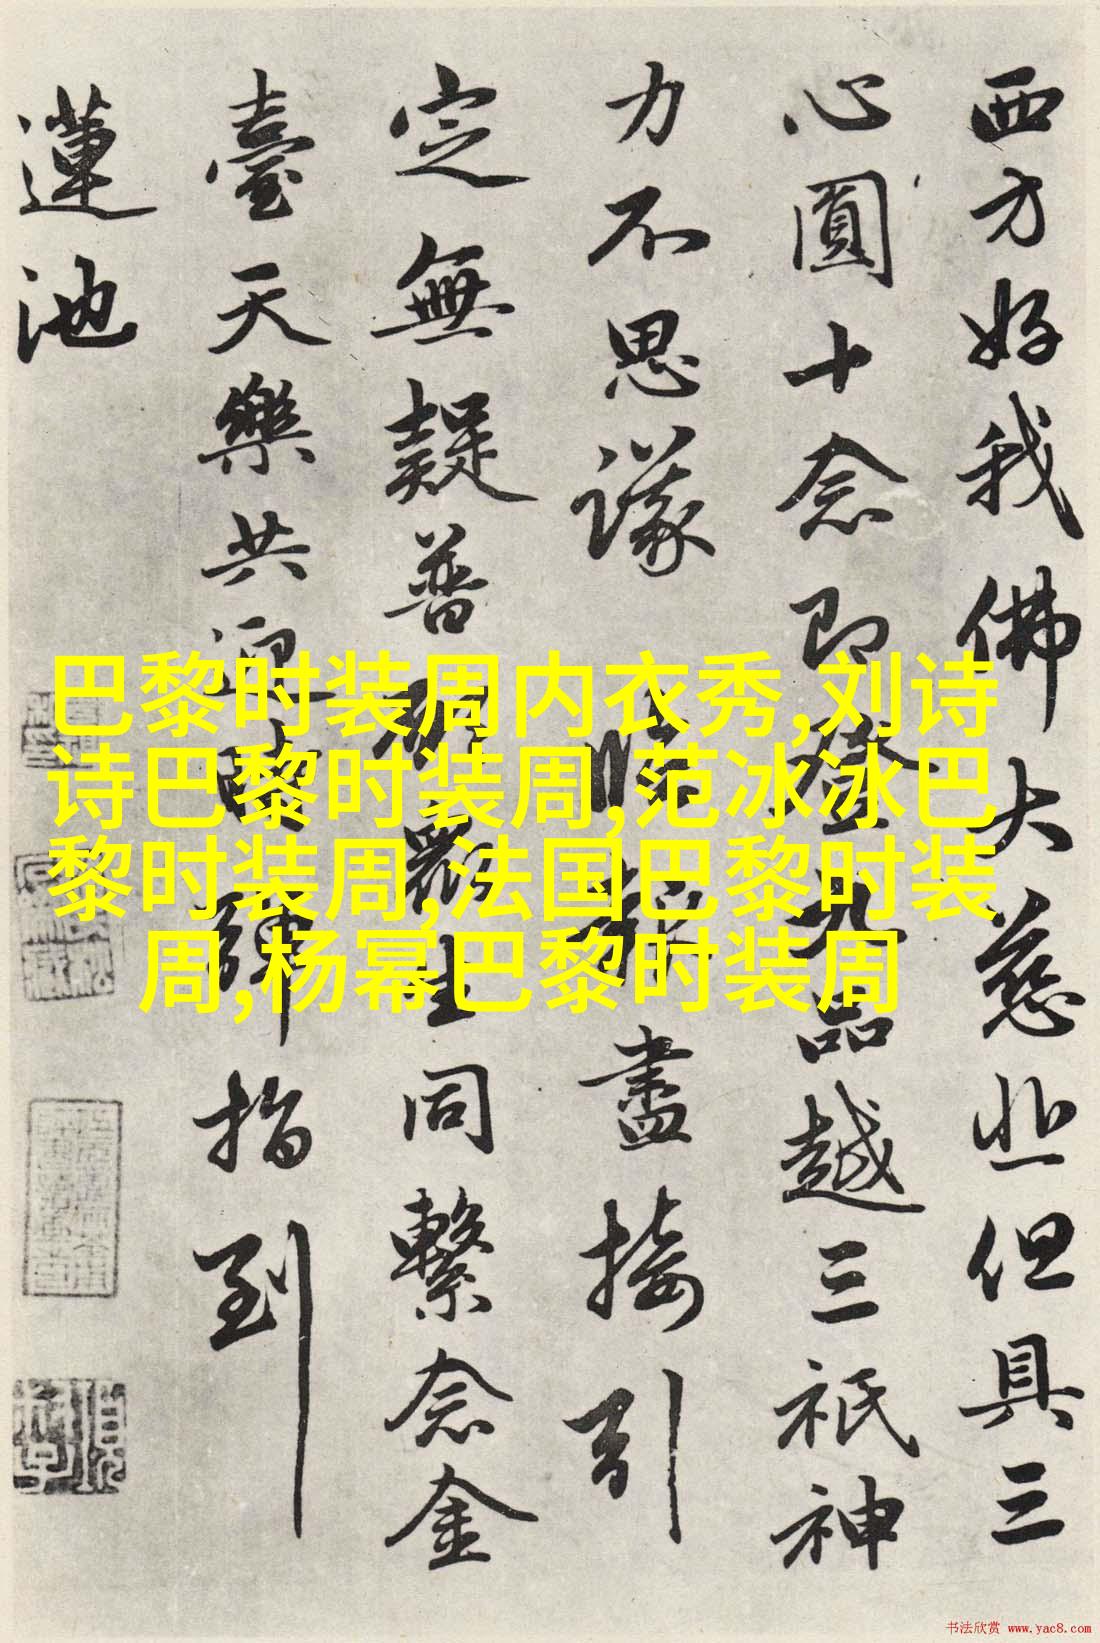 西方好我佛大慈悲但具三
心圓十念即登九品越三祇神
力不思議 臨報盡接引
定無疑普眾生同繫念金
臺天樂共迎陪彈指到
蓮池
巴黎时装周内衣秀,刘诗
诗巴黎时装周,范冰冰巴
黎时装周,法国巴黎时装
周,杨幂巴黎时装周
书法欣赏 www.yac8.com